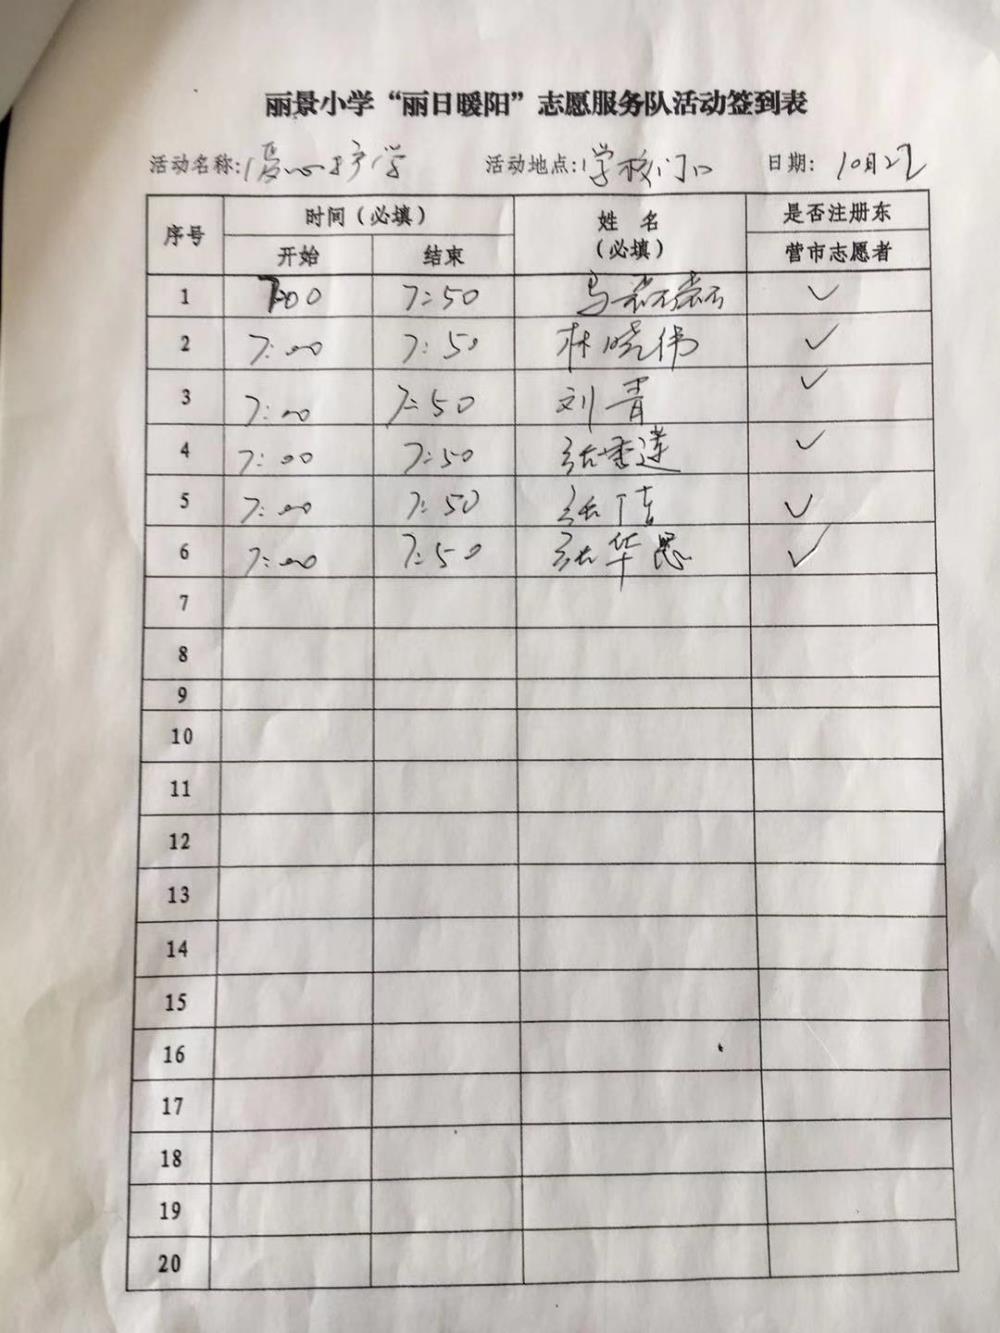 丽景小学“丽日暖阳”志愿服务队活动签到表
活动名称:爱心护学 活动地点:学校门口 日期: 10月2
序号 时间(必填) 姓 名 (必填) 是否注册东
开始 结束 营市志愿者
1 7:00 7:50 ✓
2 7:00 7:50 林晓伟 ✓
3 7:00 7:50 刘青 ✓
4 7:00 7:50 张 莲 ✓
5 7:00 7:50 张 ✓
6 7:00 7:50 张华恩 ✓
7
8
9
10
11
12
13
14
15
16
17
18
19
20